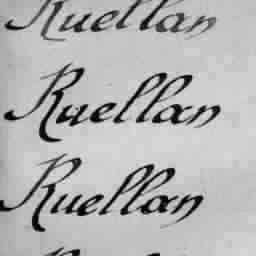 Ruellan
Ruellan
Ruellan